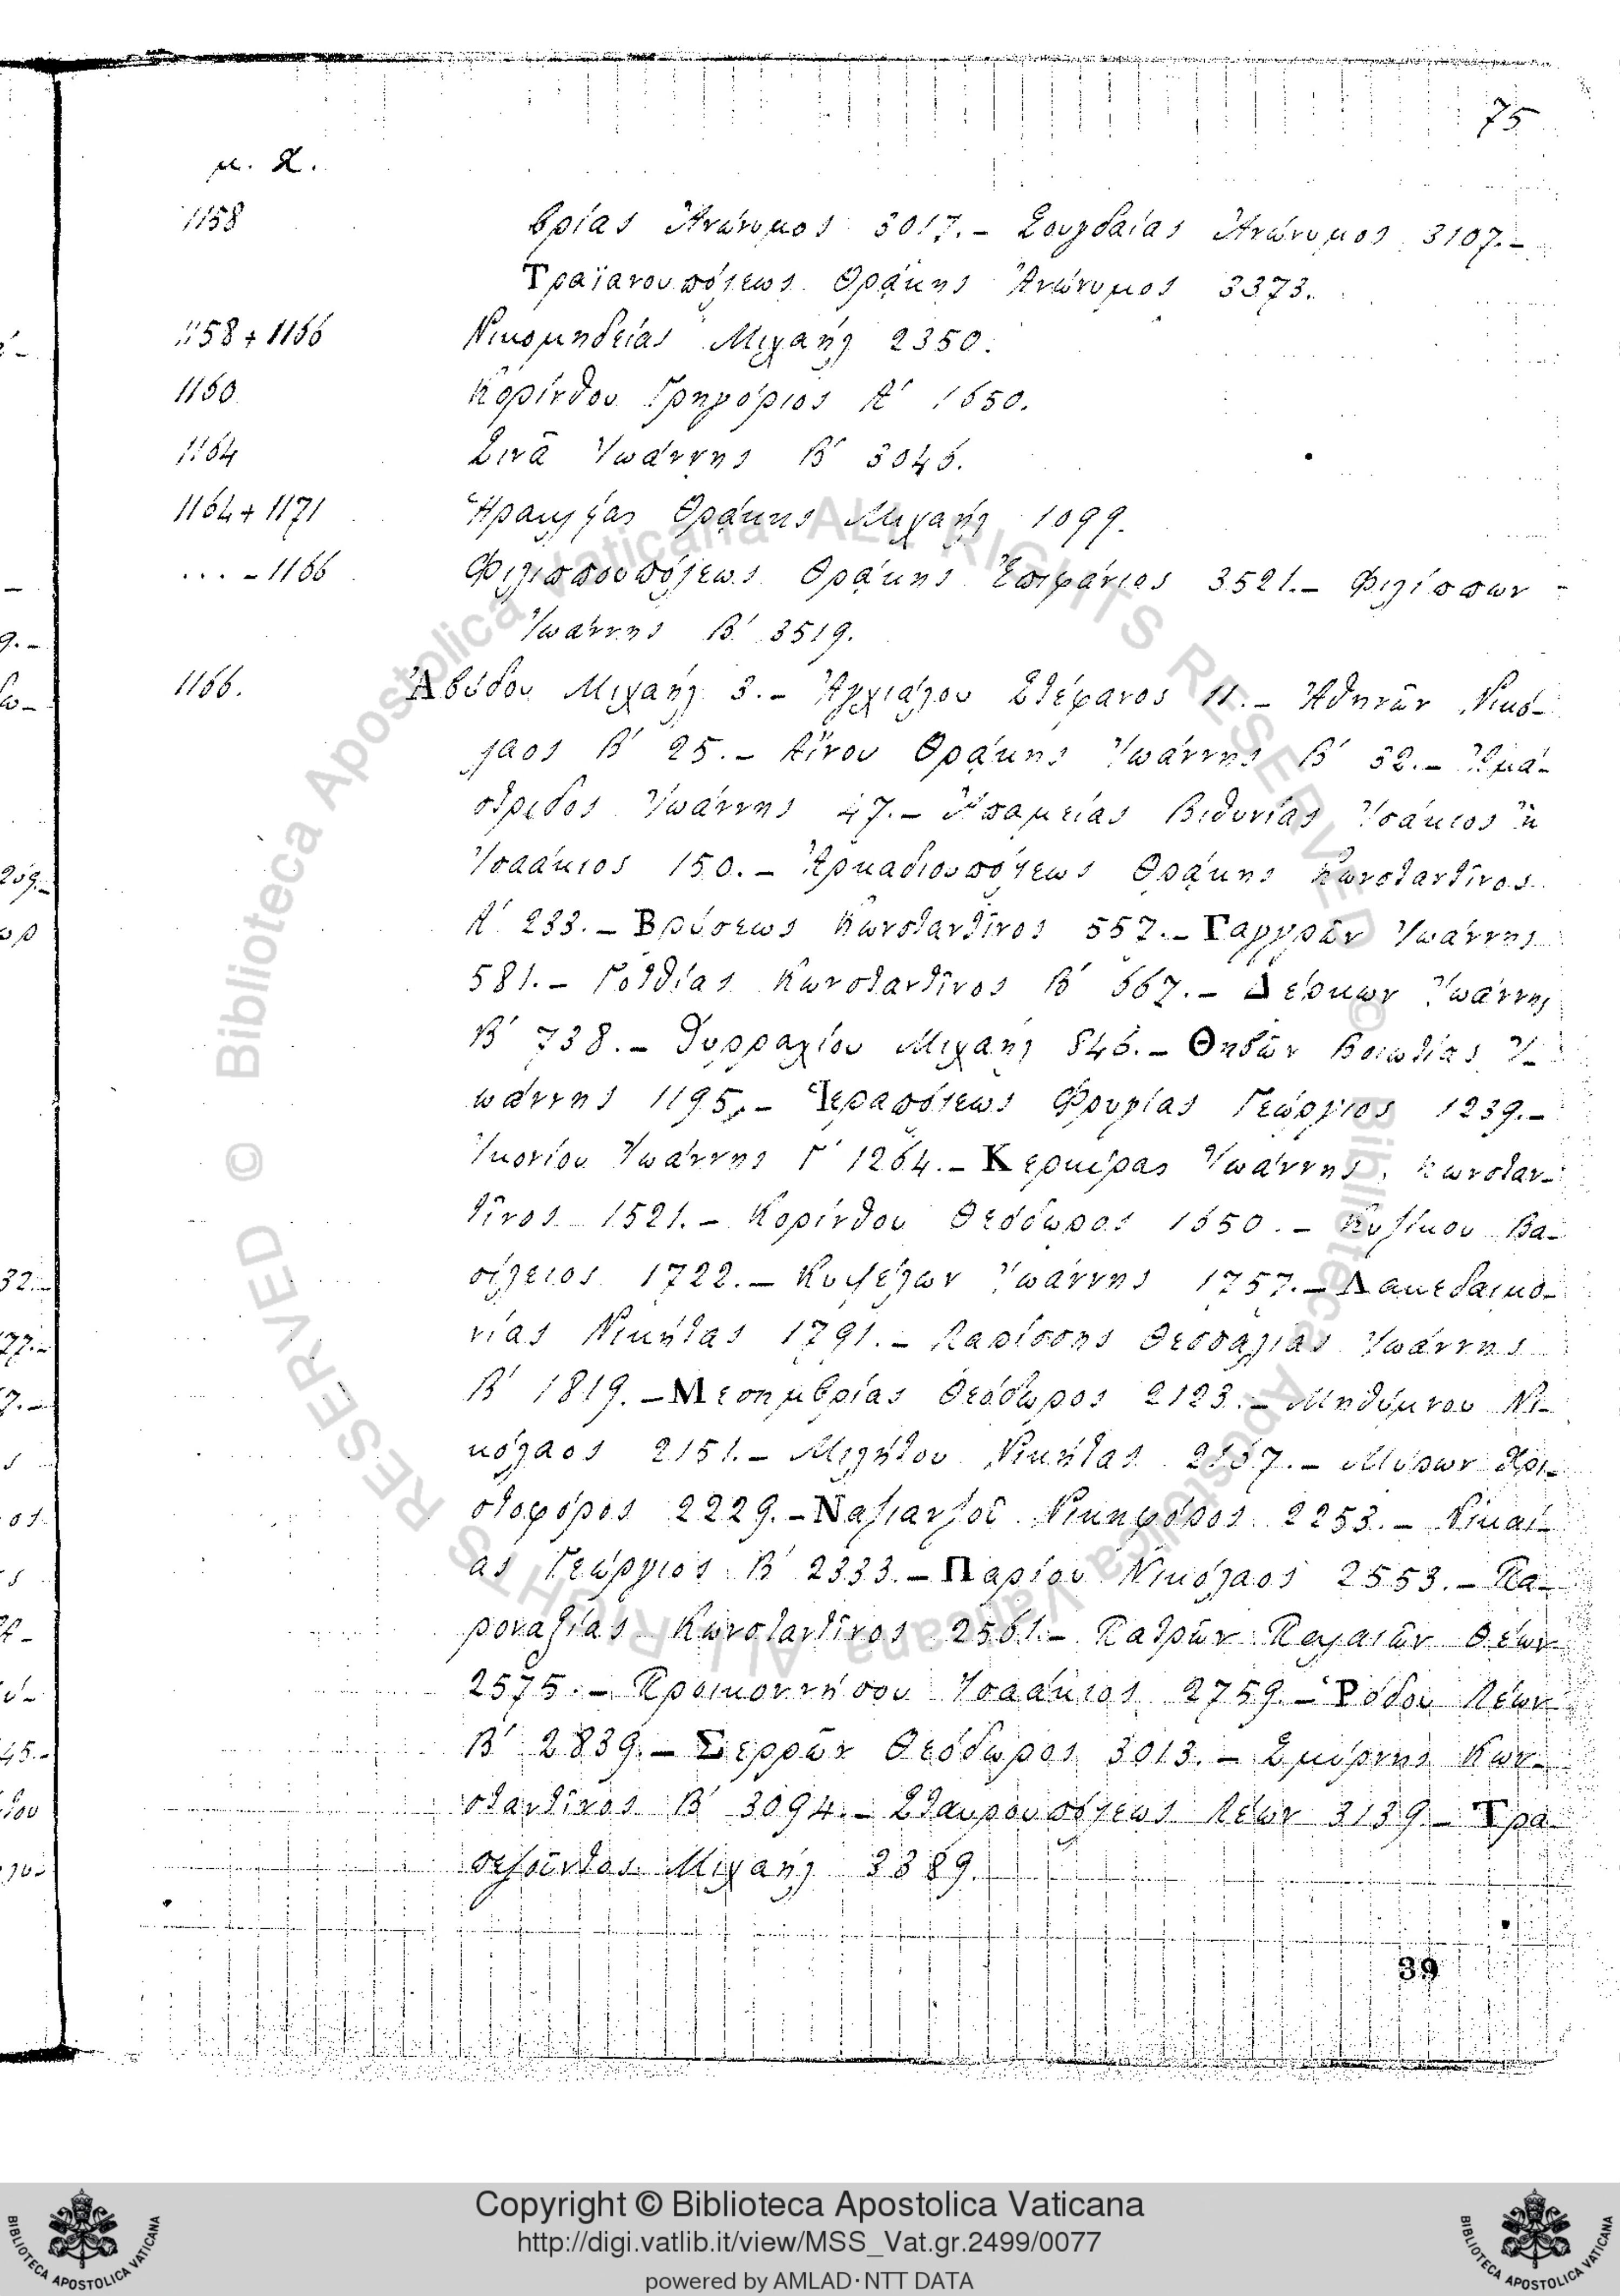 75
μ. Χ.
1158 βρίας Ἀνώνυμος 3017.– Σουγδαίας Ἀνώνυμος 3107.–
Τραϊανουπόλεως Θράκης Ἀνώνυμος 3373.
1158 + 1166 Νικομηδείας Μιχαήλ 2350.
1160 Κορίνθου Γρηγόριος Α′ 1650.
1164 Σινᾶ Ἰωάννης Β′ 3046.
1164 + 1171 Ἡρακλείας Θράκης Μιχαήλ 1099.
... – 1166 Φιλιππουπόλεως Θράκης Ἐπιφάνιος 3521.– Φιλίππων
Ἰωάννης Β′ 3519.
1166. Ἀβύδου Μιχαήλ 3.– Ἀγχιάλου Στέφανος 11.– Ἀθηνῶν Νικό–
λαος Β′ 25.– Αἴνου Θράκης Ἰωάννης Β′ 32.– Ἀμά–
στριδος Ἰωάννης 47.– Ἀπαμείας Βιθυνίας Ἰσάκιος ἢ
Ἰσαάκιος 150.– Ἀρκαδιουπόλεως Θράκης Κωνσταντῖνος
Α′ 233.– Βρύσεως Κωνσταντῖνος 557.– Γαργρῶν Ἰωάννης
581.– Γοτθίας Κωνσταντῖνος Β′ 667.– Δέρκων Ἰωάννης
Β′ 738.– Δυρραχίου Μιχαήλ 846.– Θηβῶν Βοιωτίας Ἰ–
ωάννης 1195.– Ἱεραπόλεως Φρυγίας Γεώργιος 1239.–
Ἰκονίου Ἰωάννης Γ′ 1264.– Κερκύρας Ἰωάννης, Κωνσταν–
τῖνος 1521.– Κορίνθου Θεόδωρος 1650.– Κυζίκου Βα–
σίλειος 1722.– Κυψέλων Ἰωάννης 1757.– Λακεδαιμο–
νίας Νικήτας 1791.– Λαρίσσης Θεσσαλίας Ἰωάννης
Β′ 1819.– Μεσημβρίας Θεόδωρος 2123.– Μηθύμνου Νι–
κόλαος 2151.– Μιλήτου Νικήτας 2167.– Μύρων Χρι–
στοφόρος 2229.– Ναζιανζοῦ Νικηφόρος 2253.– Νικαί–
ας Γεώργιος Β′ 2333.– Παρίου Νικόλαος 2553.– Πα–
ροναξίας Κωνσταντῖνος 2561.– Πατρῶν Παλαιῶν Θέων
2575.– Προικοννήσου Ἰσαάκιος 2759.– Ῥόδου Λέων
Β′ 2839.– Σερρῶν Θεόδωρος 3013.– Σμύρνης Κων–
σταντῖνος Β′ 3094.– Σταυρουπόλεως Λέων 3139.– Τρα–
πεζοῦντος Μιχαήλ 3389.
39
© Biblioteca Apostolica Vaticana ALL RIGHTS RESERVED © Biblioteca Apostolica Vaticana ALL RIGHTS RESERVED
Copyright © Biblioteca Apostolica Vaticana
http://digi.vatlib.it/view/MSS_Vat.gr.2499/0077
powered by AMLAD·NTT DATA
BIBLIOTECA APOSTOLICA VATICANA
BIBLIOTECA APOSTOLICA VATICANA